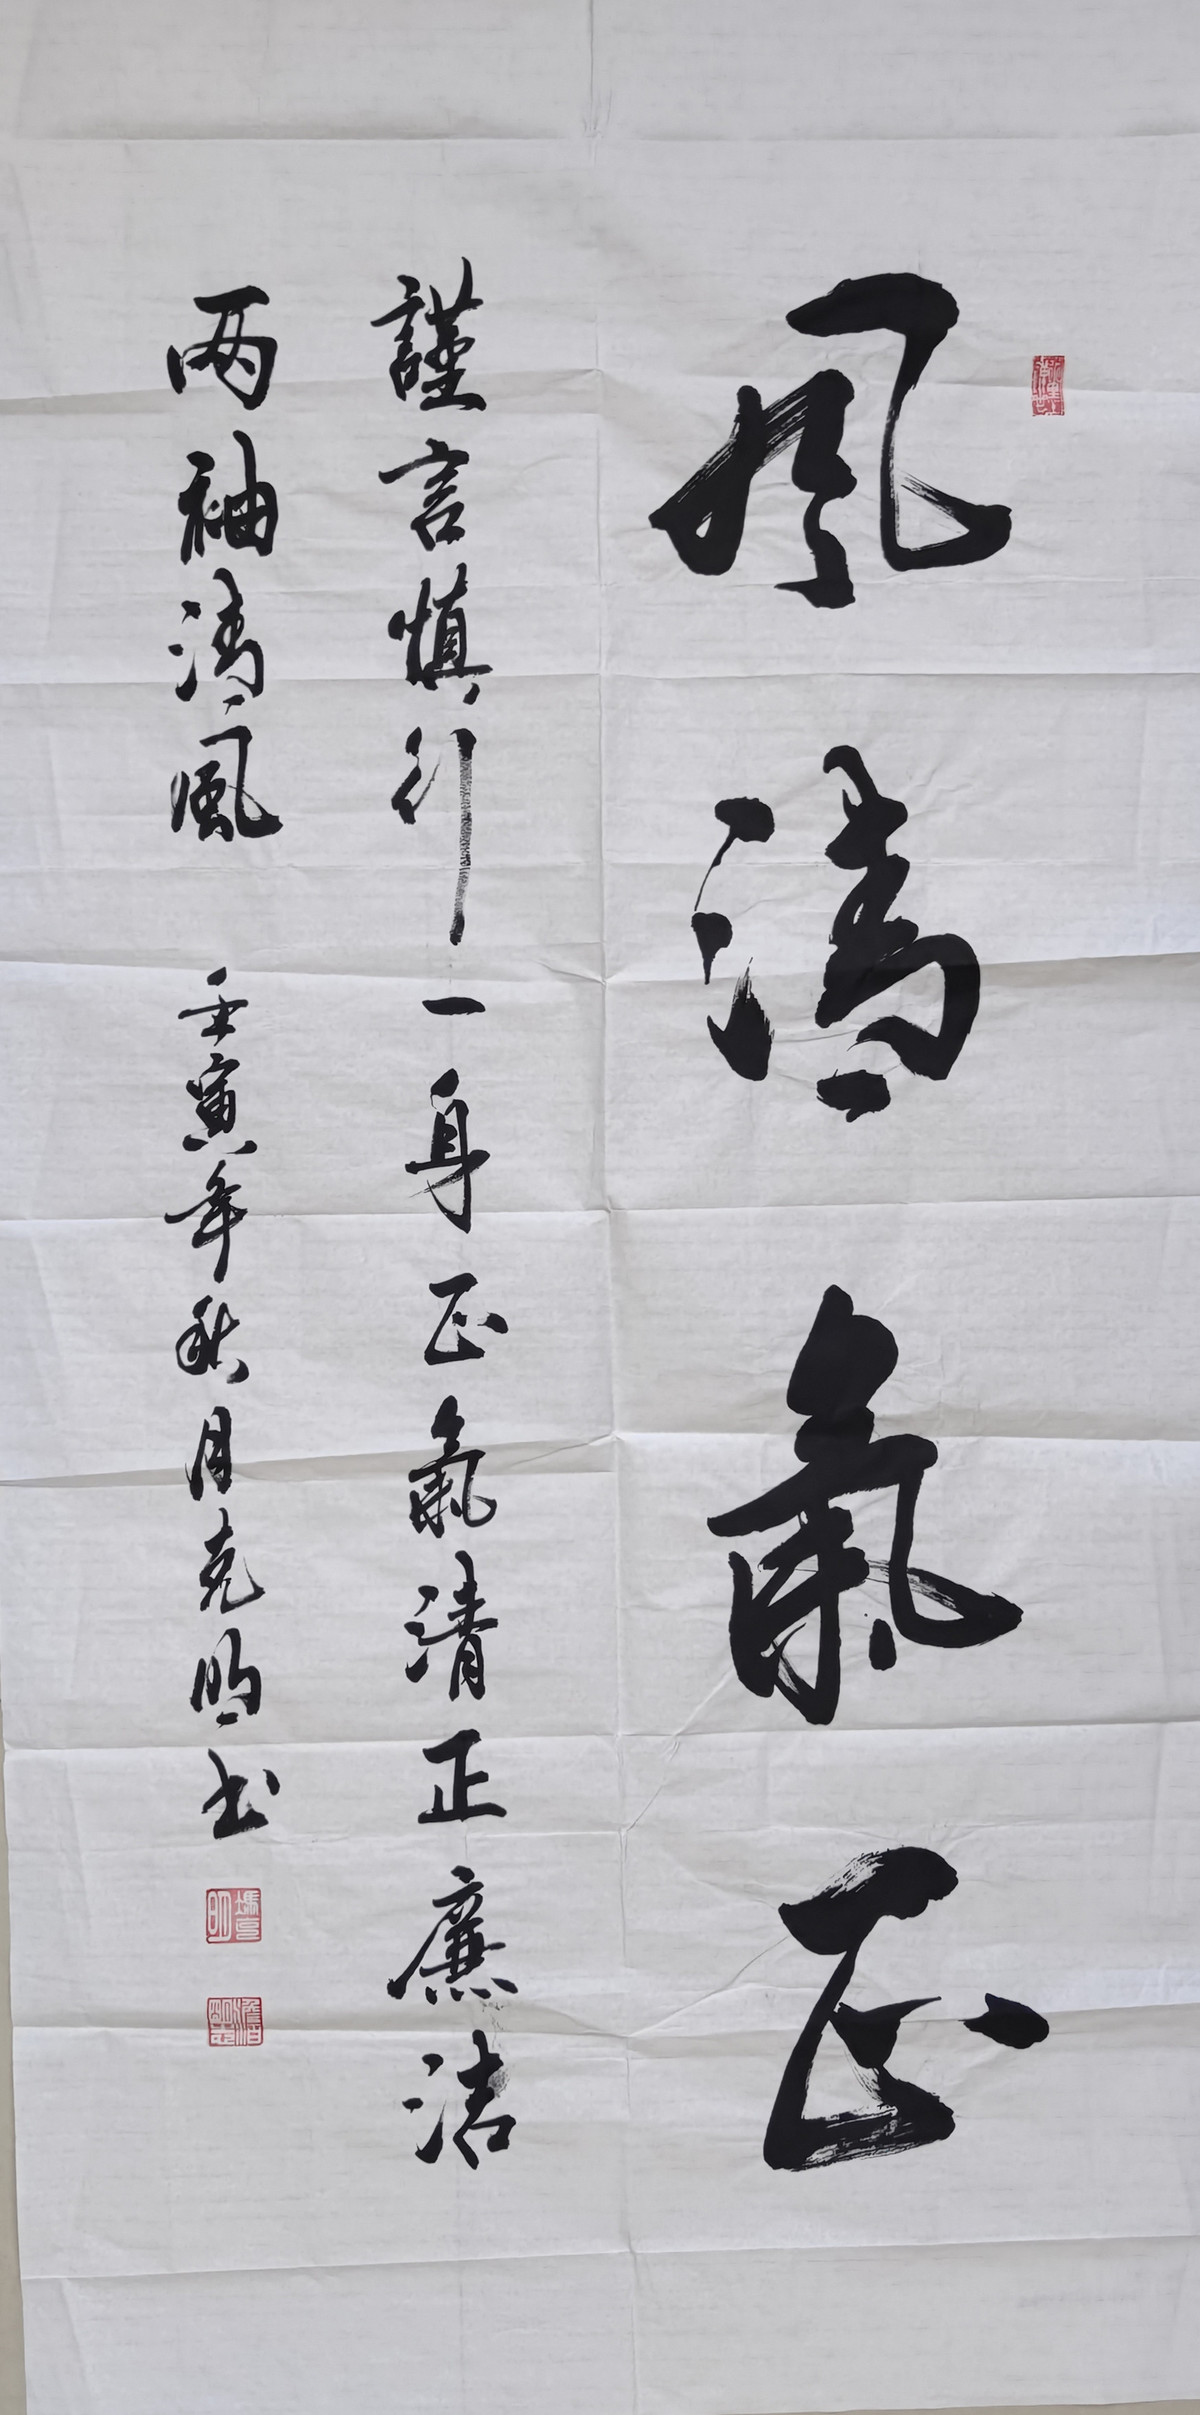 風清氣正
謹言慎行一身正氣清正廉洁
两袖清風 壬寅年秋月克明書